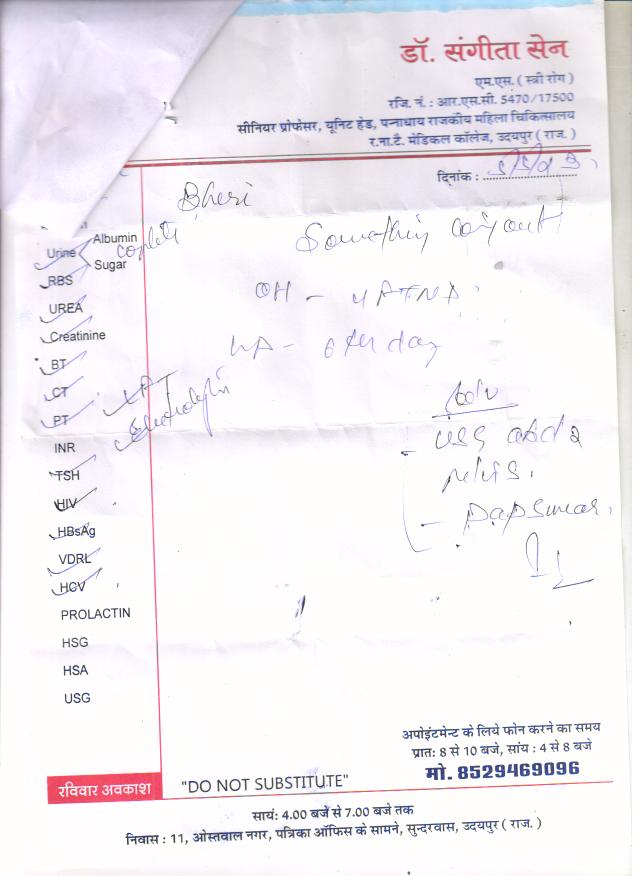 डॉ. संगीता सेन
एम.एस. ( स्त्री रोग )
रजि. नं. : आर.एस.सी. 5470/17500
सीनियर प्रोफेसर, यूनिट हेड, पन्नाधाय राजकीय महिला चिकित्सालय
र.ना.टै. मेडिकल कॉलेज, उदयपुर ( राज. )
दिनांक :
Bheri
Something
OH -
- 8th day
Adv
- USG abd &
pelvis.
- Pap smear.
Urine Albumin
Sugar
RBS
UREA
Creatinine
BT
CT
PT
Electrolytes
INR
TSH
HIV
HBsAg
VDRL
HCV
PROLACTIN
HSG
HSA
USG
अपोइंटमेन्ट के लिये फोन करने का समय
प्रातः 8 से 10 बजे, सांय : 4 से 8 बजे
मो. 8529469096
रविवार अवकाश
"DO NOT SUBSTITUTE"
सायं: 4.00 बजे से 7.00 बजे तक
निवास : 11, ओस्तवाल नगर, पत्रिका ऑफिस के सामने, सुन्दरवास, उदयपुर ( राज. )